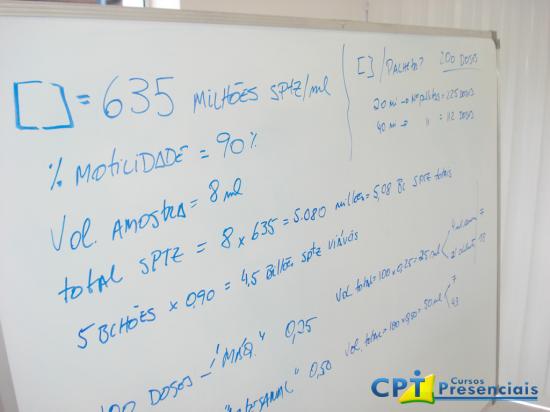 [ ] = 635 MILHÕES SPTZ/ml
% MOTILIDADE = 90%
VOL. AMOSTRA = 8 ml
TOTAL SPTZ = 8 x 635 = 5.080 milhões = 5,08 Bi SPTZ totais
5 BILHÕES x 0,90 = 4,5 Bilhões sptz viáveis
100 DOSES - "MÁQ." 0,25
VOL total = 100 x 0,25 = 25 ml
7
18
0,50
VOL. total = 100 x 0,50 = 50 ml
7
43
[ ] / PALHETA? 200 DOSES
20 mi → Nº palhetas = 225 DOSES
40 mi → " = 112 DOSES
CPT Cursos Presenciais